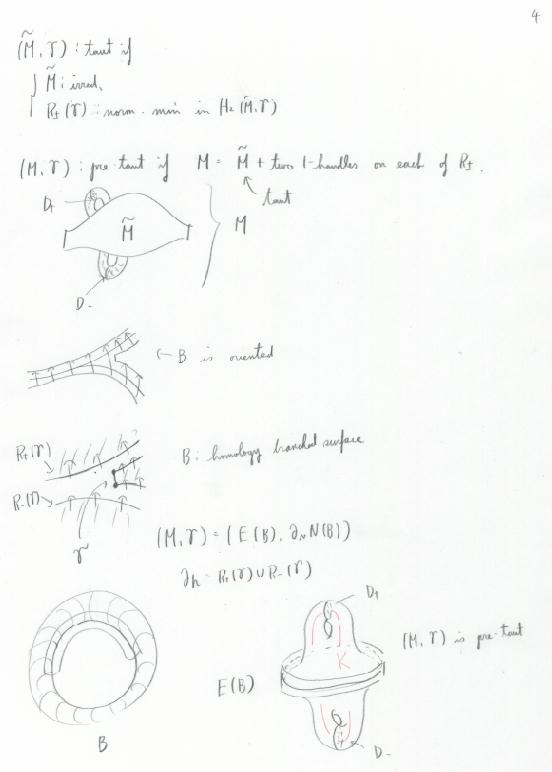 4
(M̃, γ) : taut if
M̃ : irred,
R±(γ) : norm - min in H₂(M̃, γ)
(M, γ) : pre-taut if M = M̃ + two 1-handles on each of R±.
taut
D+
M̃
M
D-
← B is oriented
R+(γ)
B : homology branched surface
R-(γ)
γ
(M, γ) = (E(B), ∂ᵥN(B))
∂h = R+(γ) ∪ R-(γ)
D+
(M, γ) is pre-taut
K
E(B)
B
D-